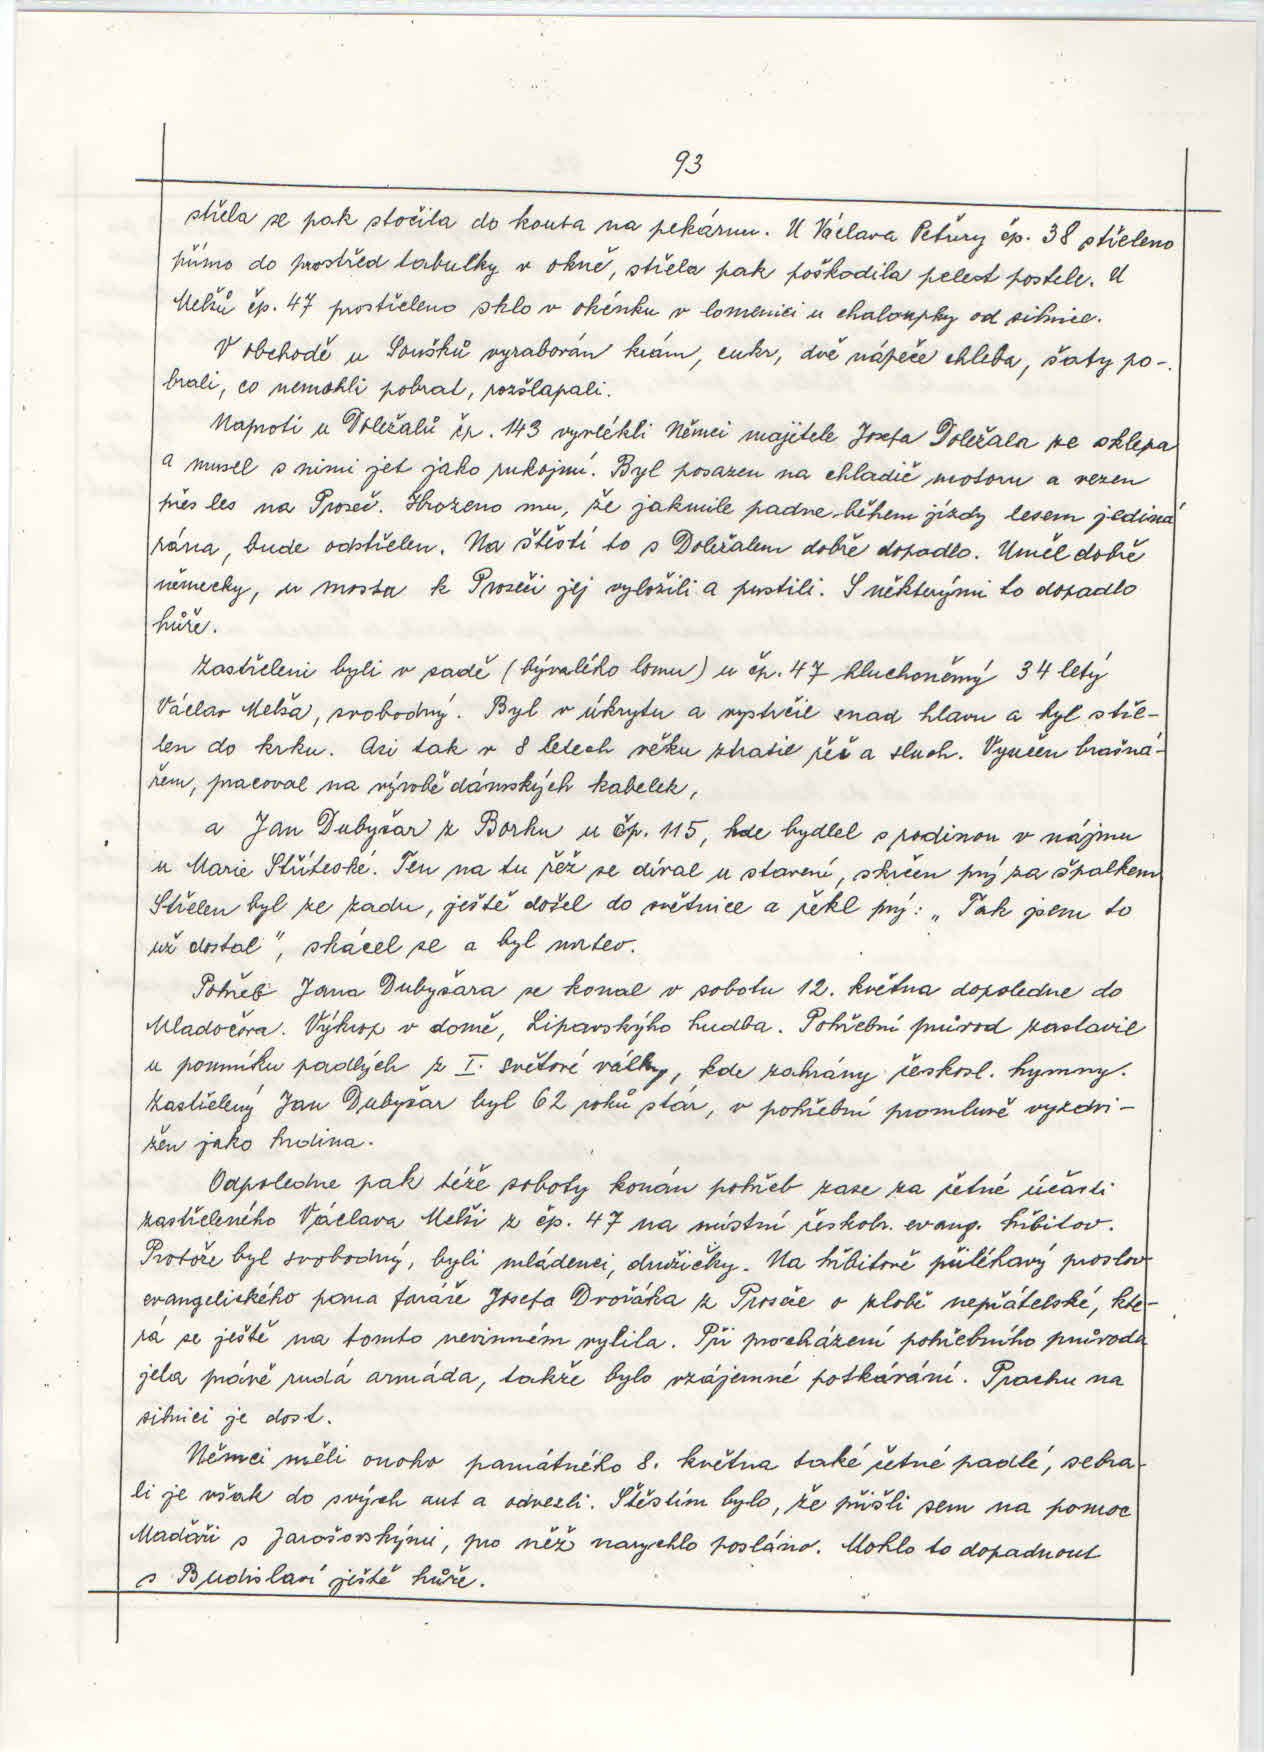 93
střela se pak stočila do kouta na pekárnu. U Václava Petřury čp. 38 střeleno
přímo do prostřed tabulky v okně, střela pak poškodila pelest postele. U
Melšů čp. 47 prostřeleno sklo v okénku v lomenici u chaloupky od silnice.
V obchodě u Soušků vyrabován krám, cukr, dvě nápeče chleba, šaty po-
brali, co nemohli pobrat, rozšlapali.
Naproti u Doležalů čp. 143 vyvlékli Němci majitele Josefa Doležala ze sklepa
a musel s nimi jet jako rukojmí. Byl posazen na chladič motoru a vezen
přes les na Proseč. Hrozeno mu, že jakmile padne během jízdy lesem jediná
rána, bude odstřelen. Na štěstí to s Doležalem dobře dopadlo. Uměl dobře
německy, u mosta k Proseči jej vyložili a pustili. S některými to dopadlo
hůře.
Zastřeleni byli v sadě (bývalého lomu) u čp. 47 hluchoněmý 34 letý
Václav Melša, svobodný. Byl v úkrytu a vystrčil snad hlavu a byl stře-
len do krku. Asi tak v 8 letech věku ztratil řeč a sluch. Vyučen brašná-
řem, pracoval na výrobě dámských kabelek,
a Jan Dubyšar z Borku u čp. 115, kde bydlel s rodinou v nájmu
u Marie Stříteské. Ten na tu řež se díval u stavení, skrčen prý za špalkem
Střelen byl ze zadu, ještě došel do světnice a řekl prý: „Tak jsem to
už dostal", skácel se a byl mrtev.
Pohřeb Jana Dubyšara se konal v sobotu 12. května dopoledne do
Mladočova. Výkrop v domě, Lipavskýho hudba. Pohřební průvod zastavil
u pomníku padlých z I. světové války, kde zahrány českosl. hymny.
Zastřelený Jan Dubyšar byl 62 roků stár, v pohřební promluvě vyzdvi-
žen jako hrdina.
Odpoledne pak téže soboty konán pohřeb zase za četné účasti
zastřeleného Václava Melši z čp. 47 na místní českobr. evang. hřbitov.
Protože byl svobodný, byli mládenci, družičky. Na hřbitově přiléhavý proslov
evangelického pana faráře Josefa Dvořáka z Proseče o zlobě nepřátelské, kte-
rá se ještě na tomto nevinném vylila. Při procházení pohřebního průvodu
jela právě rudá armáda, takže bylo vzájemné potkávání. Prachu na
silnici je dost.
Němci měli onoho památného 8. května také četné padlé, sebra-
li je však do svých aut a odvezli. Štěstím bylo, že přišli sem na pomoc
Maďaři s Jarošovskými, pro něž narychlo posláno. Mohlo to dopadnout
s Budislaví ještě hůře.